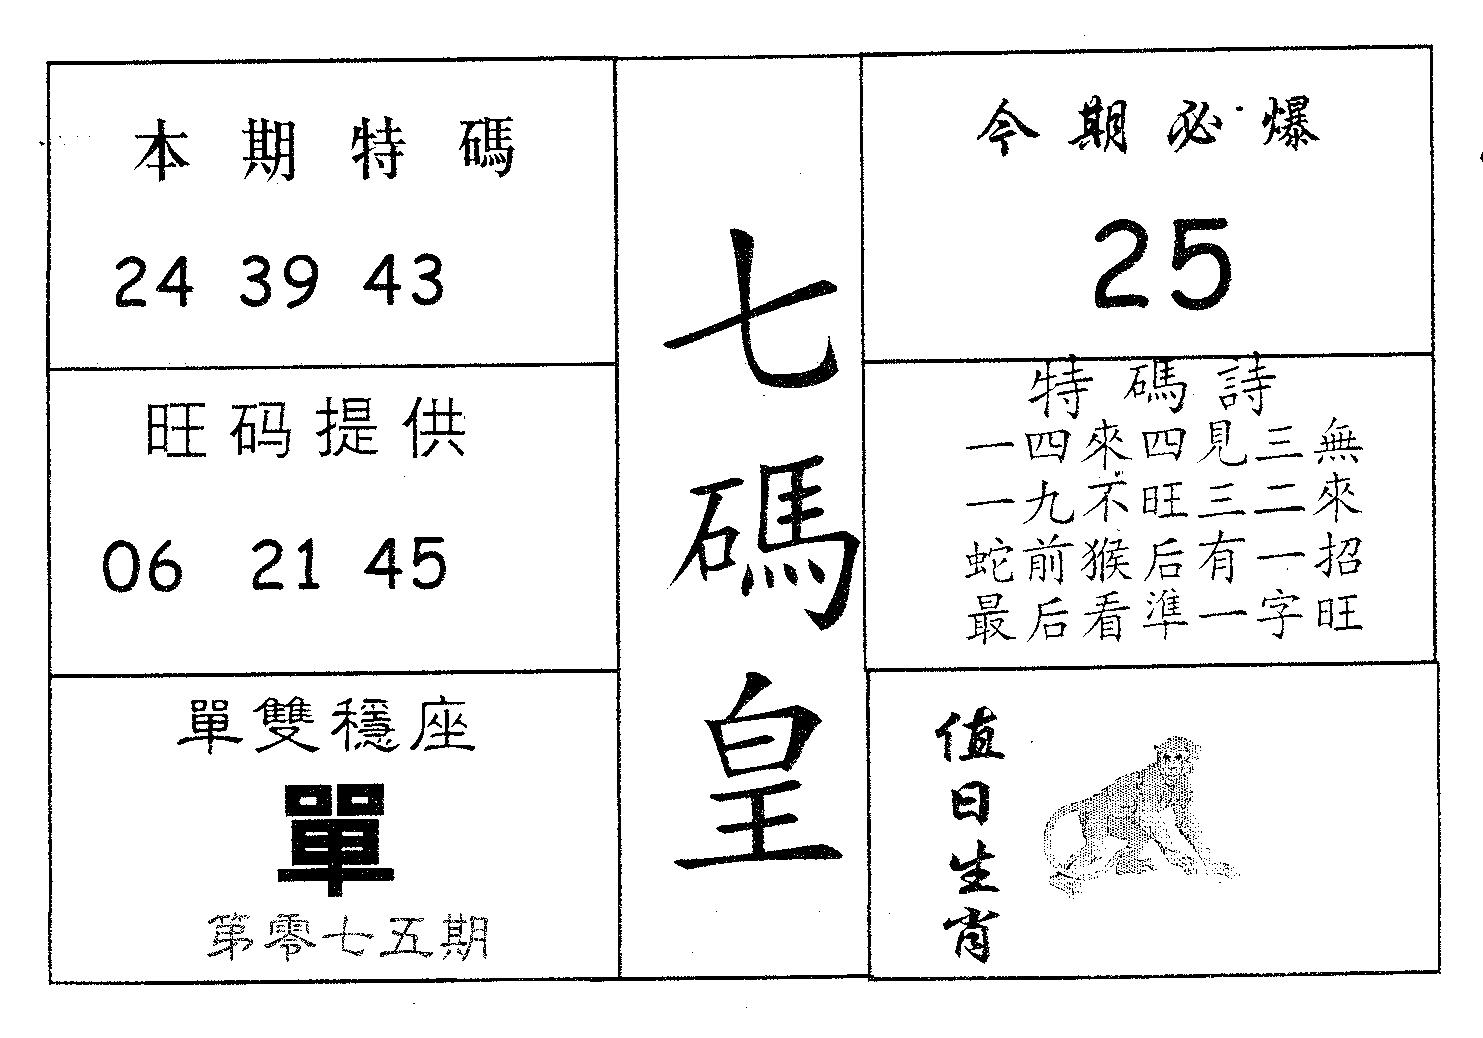 本期特碼
24 39 43
旺码提供
06 21 45
單雙穩座
單
第零七五期
七碼皇
今期必爆
25
特碼詩
一四來四見三無
一九不旺三二來
蛇前猴后有一招
最后看準一字旺
值日生肖